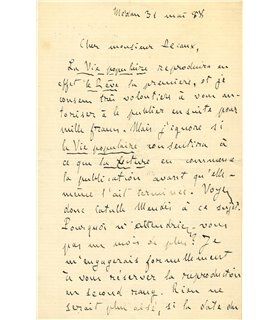 Médan 31 mai 88
Cher monsieur Lecaux,
La Vie populaire reproduira en
effet le Rêve la première, et je
consens très volontiers à vous au-
toriser à le publier ensuite pour
mille francs. Mais j'ignore si
la Vie populaire consentira à
ce que la lecture en commence
la publication avant qu'elle-
même l'ait terminée. Voyez
donc Catulle Mendès à ce sujet.
Pourquoi n'attendriez-vous
pas un mois de plus? Je
m'engagerais formellement
à vous réserver la reproduction
en second rang. Rien ne
serait plus aisé, si la date du